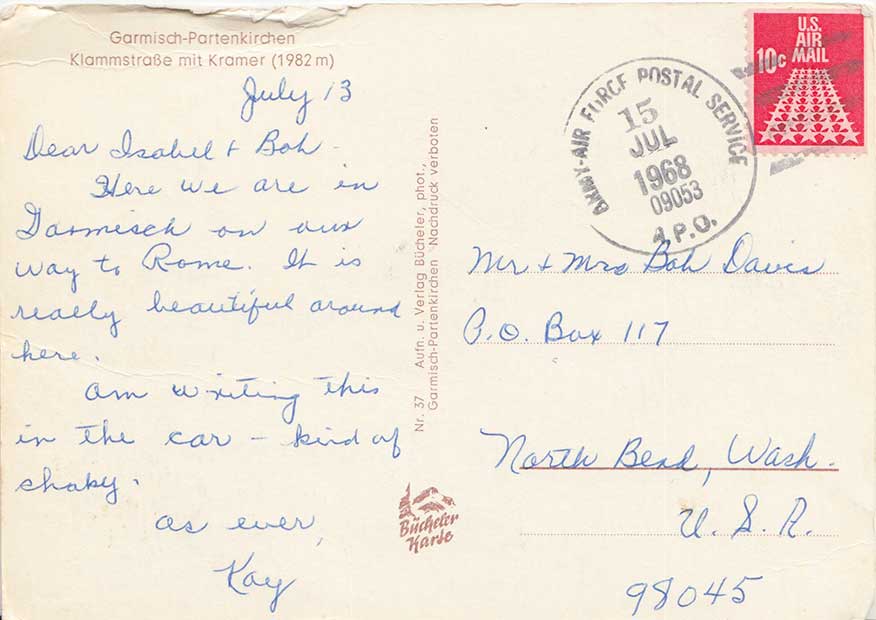 Garmisch-Partenkirchen
Klammstraße mit Kramer (1982 m)
July 13
Dear Isabel + Bob -
Here we are in
Garmisch on our
way to Rome. It is
really beautiful around
here.
Am writing this
in the car - kind of
shaky.
As ever,
Kay
Nr. 37 Aufn. u. Verlag Bücheler, phot.,
Garmisch-Partenkirchen - Nachdruck verboten
Bücheler
Karte
U.S.
AIR
MAIL
10c
ARMY-AIR FORCE POSTAL SERVICE
15
JUL
1968
09053
A.P.O.
Mr + Mrs Bob Davis
P.O. Box 117
North Bend, Wash.
U. S. A.
98045